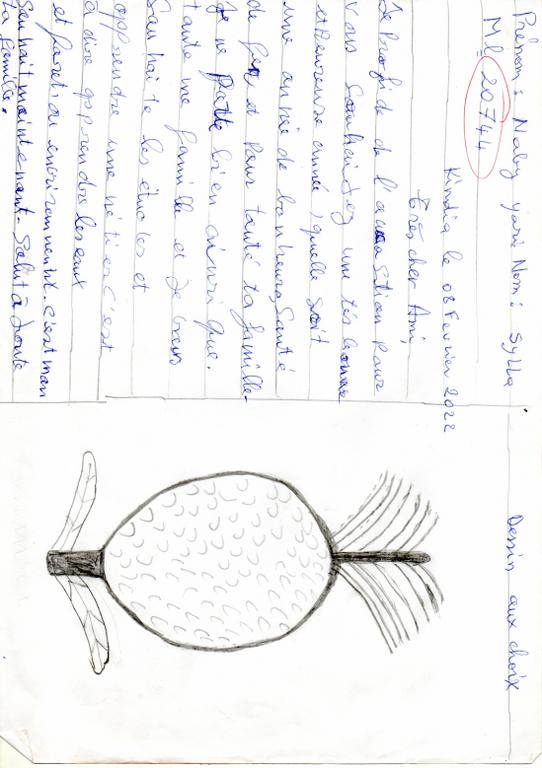 Prénom : Naby yari Nom : Sylla
Ml 20744
Kindia le 08 Fevrier 2022
très cher Ami,
Je Profide de l'accastion Pour
vous Souheitez une tés bonne
et Heureuse année, quelle Soit
une année de bonheurs Santé
de Pour tauté ta famille.
Je ne Parte bien ainsi que.
taute me famille et Je veus
Sau hai te les études et
apprendre une mé ti er c'est
à dire apprendre les eaux
et foret ou environnement. c'est man
Sau hait maintenant. Salut à toute
ta famille.
Dessin aux choix